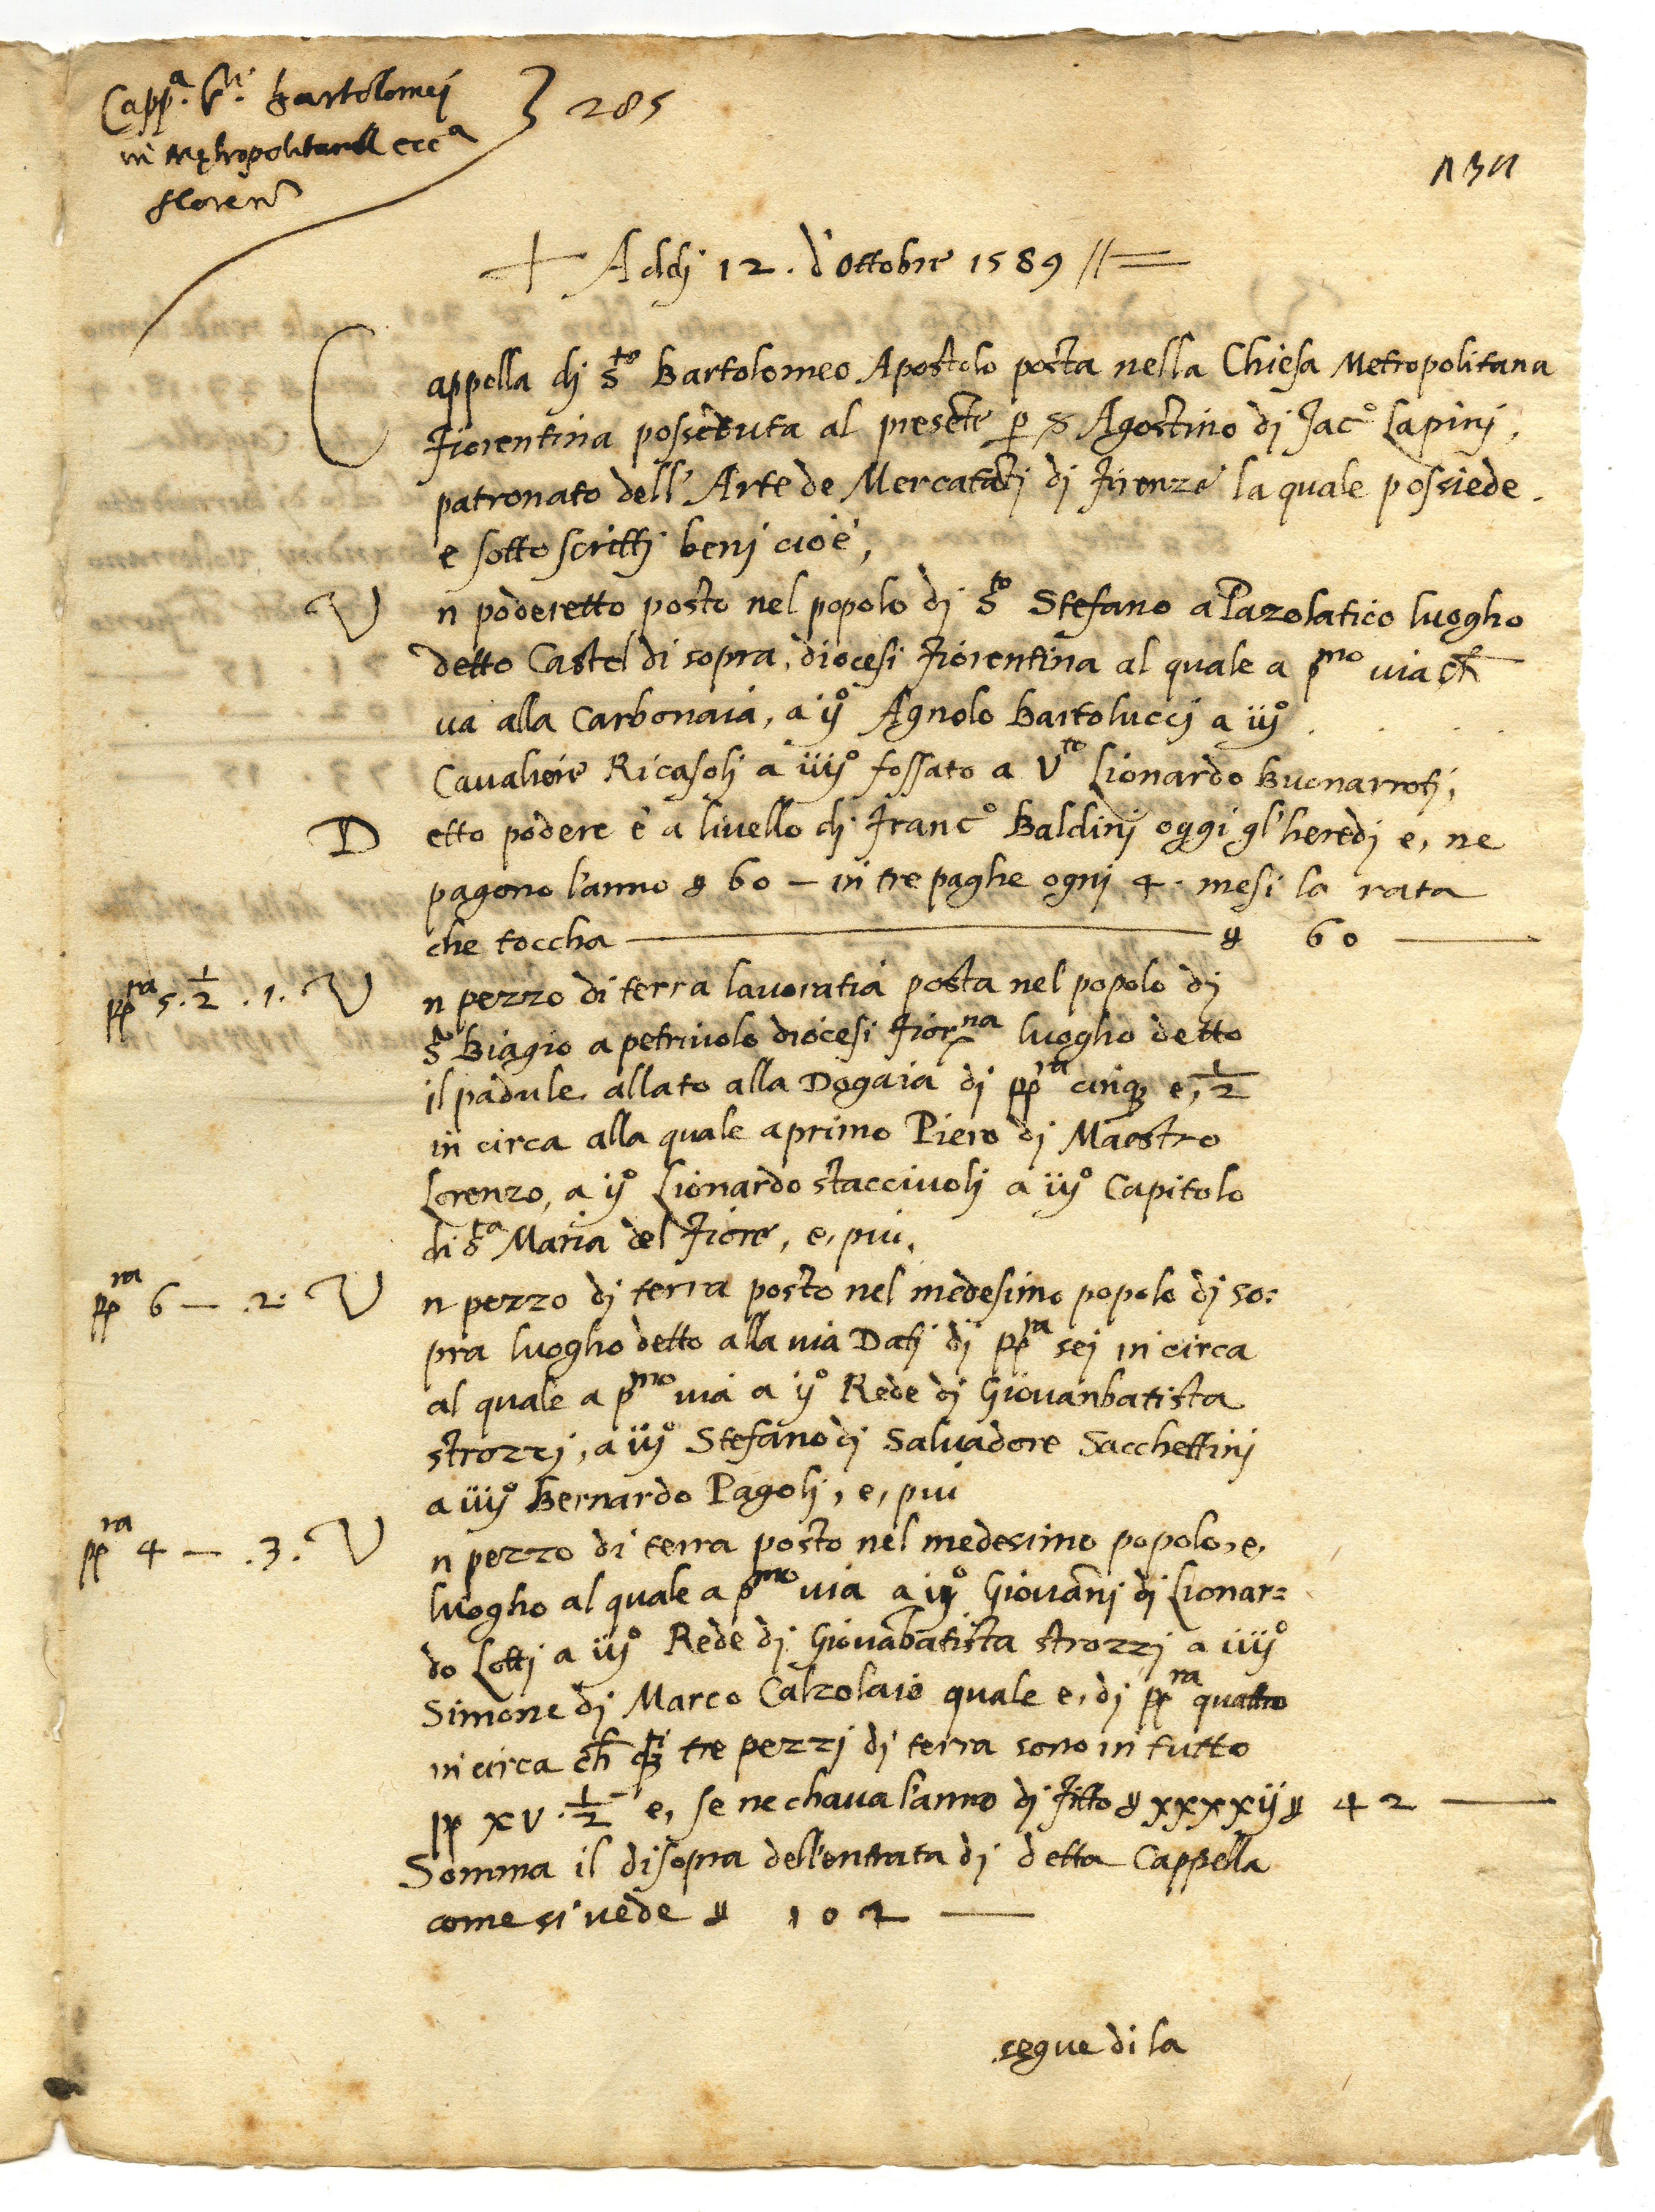 Capp.a S.ti Bartolomej
in Metropolitana ecc.a
floren.
285
+ Addj 12. d'ottobre 1589
Cappella dj s.to Bartolomeo Apostolo posta nella Chiesa Metropolitana
Fiorentina posseduta al presete p s Agostino dj Jac.o Lapinj,
patronato dell'Arte de Mercatatj dj Firenze la quale possiede
e sotto scrittj benj cioè,
Un poderetto posto nel popolo dj s.to Stefano a Pazolatico luogho
detto Castel di sopra, diocesi Fiorentina al quale a p.mo uia ch
ua alla Carbonaia, a ij.o Agnolo Bartoluccj a iij.o . . . .
Caualiere Ricasolj a iiij.o fossato a V.to Lionardo Buonarrotj,
Detto podere è a liuello dj Franc.o Baldinj oggi gl'heredj e, ne
pagono l'anno ꝟ 60 — in tre paghe ognj 4. mesi la rata
che toccha — ꝟ 60 —
pp.ra 5. 1/2 .1. Un pezzo di terra lauoratia posta nel popolo dj
s. Biagio a petriuolo diocesi Fior.na luogho detto
il padule allato alla Dogaia dj pp.ra cinq; e, 1/2
in circa alla quale a primo Piero dj Maestro
Lorenzo, a ij.o Lionardo stacciuolj a iij.o Capitolo
di s.ta Maria del Fiore, e, piu,
pp.ra 6 — .2. Un pezzo dj terra posto nel medesimo popolo dj so:
pra luogho detto alla uia Datj dj pp.ra sej in circa
al quale a p.mo uia a ij.o Rede dj Giouanbatista
strozzj, a iij.o Stefano dj Saluadore Sacchettinj
a iiij.o Bernardo Pagolj, e, piu
pp.ra 4 — .3. Un pezzo di terra posto nel medesimo popolo, e,
luogho al quale a p.mo uia a ij.o Giouanj dj Lionar=
do Lottj a iij.o Rede dj Giouabatista strozzj a iiij.o
Simone dj Marco Calzolaio quale e, dj pp.ra quattro
in circa ch q.i tre pezzj dj terra sono in tutto
pp XV. 1/2 e, se ne chaua l'anno dj fitto ꝟ xxxxij ꝟ 42 —
Somma il disopra dell'entrata dj detta Cappella
come si uede ꝟ 102 —
segue di la